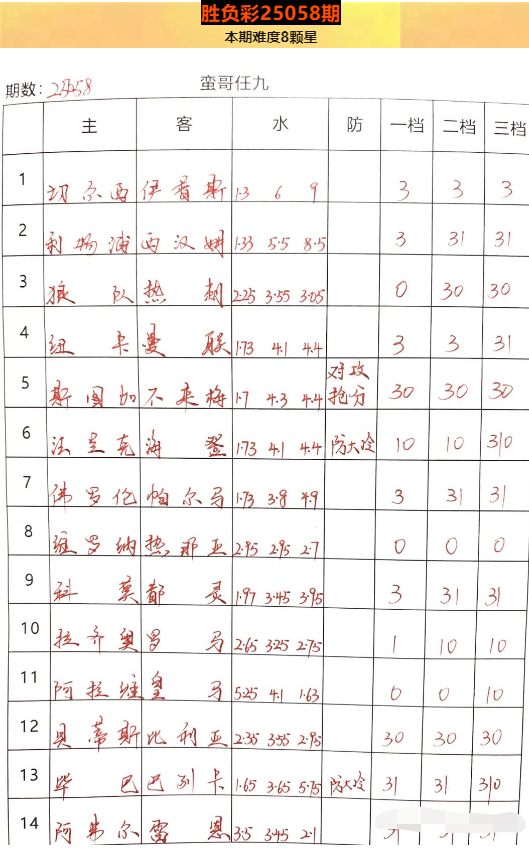 胜负彩25058期
本期难度8颗星
期数: 25058 蛮哥任九
主 客 水 防 一档 二档 三档
1 切尔西 伊普斯 1.3 6 9 3 3 3
2 利物浦 西汉姆 1.33 5.5 8.5 3 31 31
3 狼队 热刺 2.25 3.55 3.05 0 30 30
4 纽卡 曼联 1.73 4.1 4.4 3 3 31
5 斯图加 不来梅 1.7 4.3 4.4 对攻抢分 30 30 30
6 法兰克 海登 1.73 4.1 4.4 防大冷 10 10 310
7 佛罗伦 帕尔马 1.73 3.8 4.9 3 31 31
8 维罗纳 热那亚 2.95 2.95 2.7 0 0 0
9 科莫 都灵 1.97 3.45 3.95 3 31 31
10 拉齐奥 罗马 2.65 3.25 2.75 1 10 10
11 阿拉维 皇马 5.25 4.1 1.63 0 0 10
12 贝蒂斯 比利亚 2.35 3.55 2.95 30 30 30
13 毕巴 巴列卡 1.65 3.65 5.75 防大冷 31 31 310
14 阿弗尔 雷恩 3.5 3.45 2.1 31 31